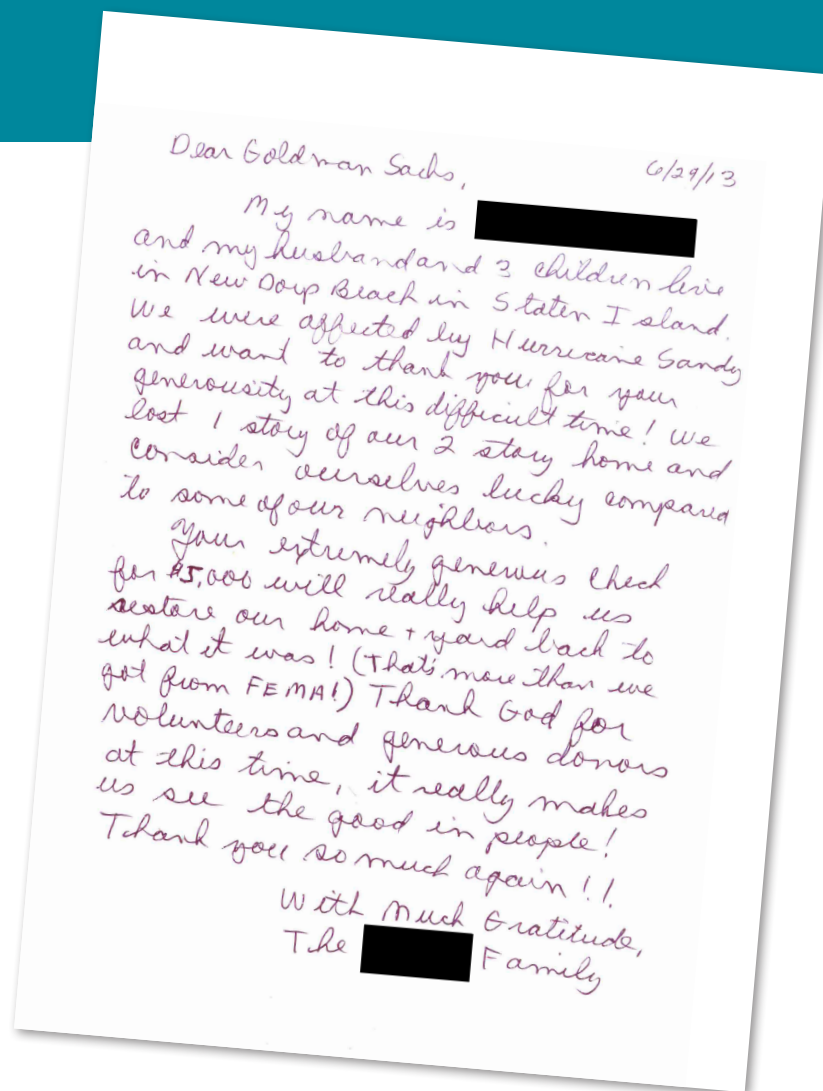 Dear Goldman Sachs,
6/29/13
My name is
and my husband and 3 children live
in New Dorp Beach in Staten Island.
We were affected by Hurricane Sandy
and want to thank you for your
generousity at this difficult time! We
lost 1 story of our 2 story home and
consider ourselves lucky compared
to some of our neighbors.
Your extremely generous check
for $5,000 will really help us
restore our home + yard back to
what it was! (That's more than we
got from FEMA!) Thank God for
volunteers and generous donors
at this time, it really makes
us see the good in people!
Thank you so much again!!
With Much Gratitude,
The Family